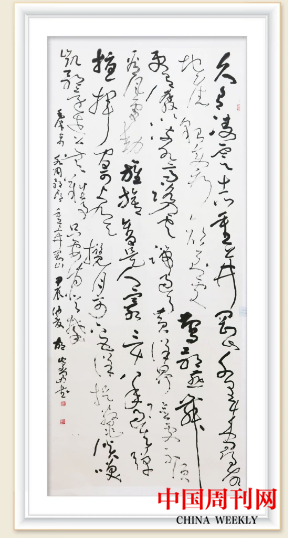 久有凌云志重上井冈山千里来寻故
地旧貌换新颜到处莺歌燕舞
更有潺潺流水高路入云端过了黄洋界险处不须
看风雷动旌旗奋是人寰三十八年过去弹
指一挥间可上九天揽月可下五洋捉鳖谈笑
凯歌还世上无难事只要肯登攀
毛泽东水调歌头重上井冈山甲辰仲夏
中国周刊网
CHINA WEEKLY